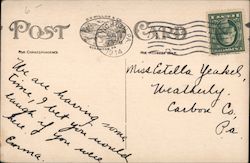 POST CARD
FOR CORRESPONDENCE
We are having some
time, I bet you would
laugh if you were
here
Emma.
Miss Estella Yeakel,
Weatherly
Carbon Co.
Pa.